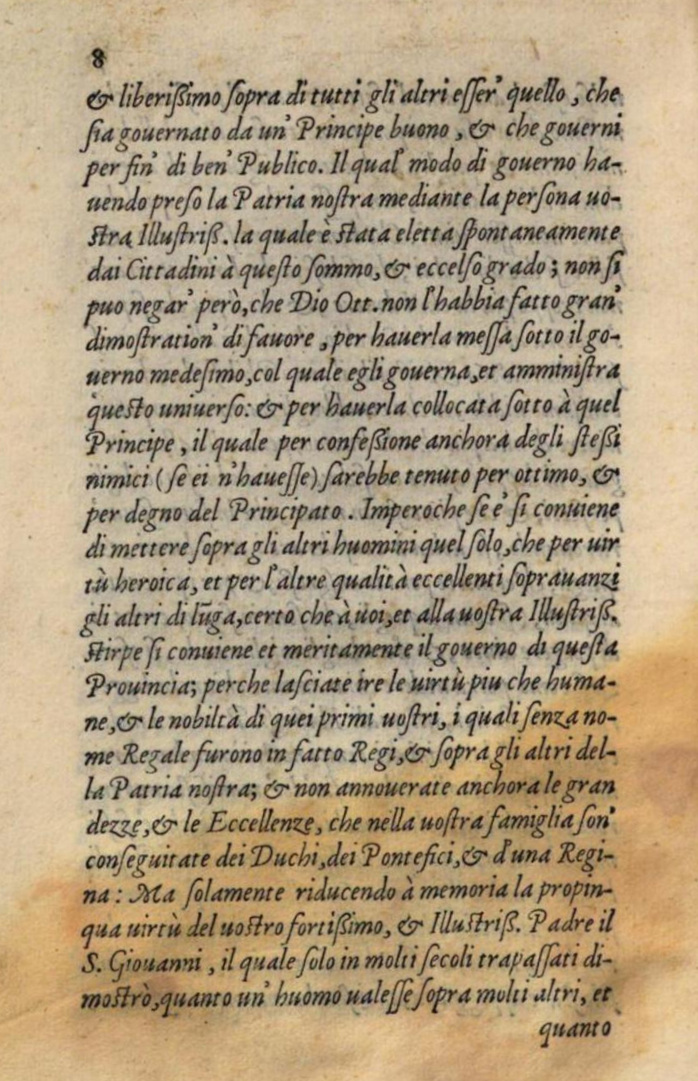 8
& liberißimo ſopra di tutti gli altri eſſer' quello, che
ſia gouernato da un' Principe buono, & che gouerni
per fin' di ben' Publico. Il qual' modo di gouerno ha-
uendo preſo la Patria noſtra mediante la perſona uo-
ſtra Illuſtriß. la quale è ſtata eletta ſpontaneamente
dai Cittadini à queſto ſommo, & eccelſo grado; non ſi
puo negar' però, che Dio Ott. non l'habbia fatto gran'
dimoſtration' di fauore, per hauerla meſſa ſotto il go-
uerno medeſimo, col quale egli gouerna, et amminiſtra
queſto uniuerſo: & per hauerla collocata ſotto à quel
Principe, il quale per confeßione anchora degli ſteßi
nimici (ſe ei n'haueſſe) ſarebbe tenuto per ottimo, &
per degno del Principato. Imperoche ſe e' ſi conuiene
di mettere ſopra gli altri huomini quel ſolo, che per uir
tù heroica, et per l'altre qualità eccellenti ſoprauanzi
gli altri di lūga, certo che à uoi, et alla uoſtra Illuſtriß.
ſtirpe ſi conuiene et meritamente il gouerno di queſta
Prouincia; perche laſciate ire le uirtù piu che huma-
ne, & le nobiltà di quei primi uoſtri, i quali ſenza no-
me Regale furono in fatto Regi, & ſopra gli altri del-
la Patria noſtra; & non annouerate anchora le gran
dezze, & le Eccellenze, che nella uoſtra famiglia ſon'
conſeguitate dei Duchi, dei Pontefici, & d'una Regi-
na: Ma ſolamente riducendo à memoria la propin-
qua uirtù del uoſtro fortißimo, & Illuſtriß. Padre il
S. Giouanni, il quale ſolo in molti ſecoli trapaſſati di-
moſtrò, quanto un' huomo ualeſſe ſopra molti altri, et
quanto